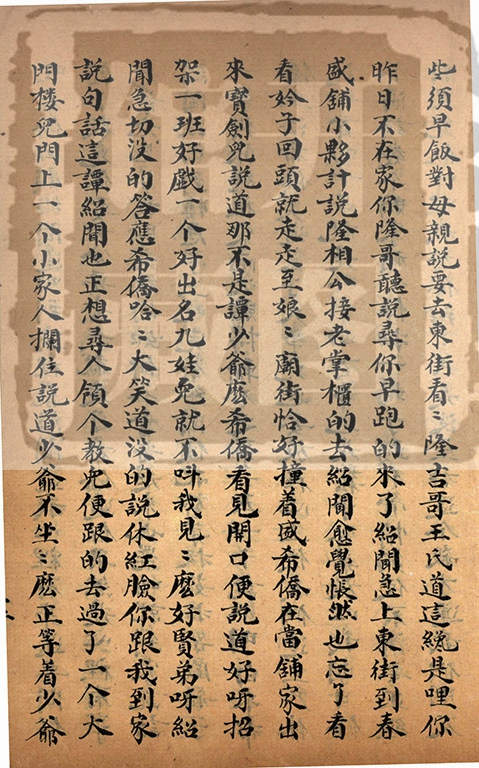 些須早飯對母親說要去東街看〻隆吉哥王氏道這纔是哩你
昨日不在家你隆哥聽說尋你早跑的來了紹聞急上東街到春
盛舖小夥計說隆相公接老掌櫃的去紹聞愈覺悵然也忘了看
看妗子回頭就走走至娘〻廟街恰好撞着盛希僑在當舖家出
來寶劍兒說道那不是譚少爺麽希僑看見開口便說道好呀招
架一班好戲一个好出名九娃兒就不呌我見〻麽好賢弟呀紹
聞急切没的答應希僑哈〻大笑道没的說休紅臉你跟我到家
說句話這譚紹聞也正想尋人領个教兒便跟的去過了一个大
門楼兒門上一个小家人攔住說道少爺不坐〻麽正等着少爺